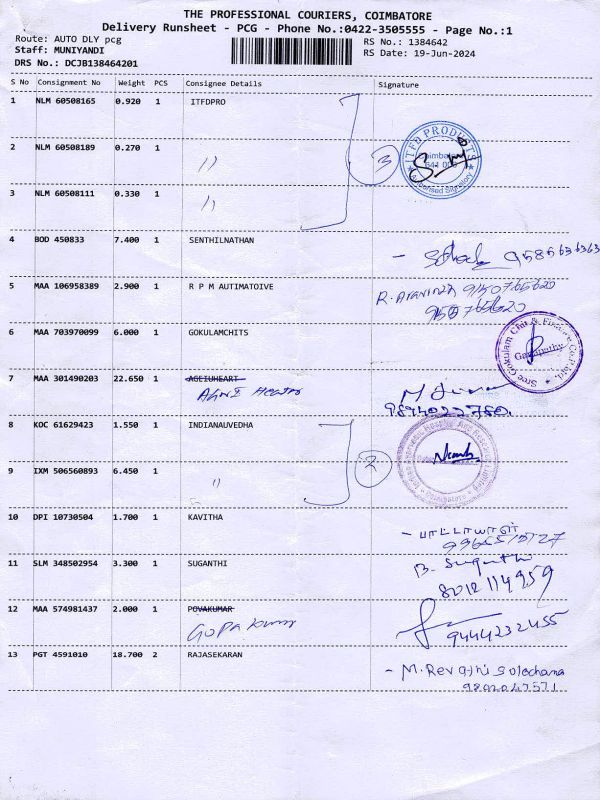 THE PROFESSIONAL COURIERS, COIMBATORE
Delivery Runsheet - PCG - Phone No.:0422-3505555 - Page No.:1
Route: AUTO DLY pcg
Staff: MUNIYANDI
DRS No.: DCJB138464201
RS No.: 1384642
RS Date: 19-Jun-2024
S No Consignment No Weight PCS Consignee Details Signature
1 NLM 60508165 0.920 1 ITFDPRO
2 NLM 60508189 0.270 1 ''
3
ITFD PRODUCTS
Coimbatore
Authorised Signatory
3 NLM 60508111 0.330 1 ''
4 BOD 450833 7.400 1 SENTHILNATHAN
9585636363
5 MAA 106958389 2.900 1 R P M AUTIMATOIVE
R. Aravind 9150765620
9150765620
6 MAA 703970099 6.000 1 GOKULAMCHITS
Sree Gokulam Chit & Finance Co.
7 MAA 301490203 22.650 1 AGEIUHEART
9894022780
8 KOC 61629423 1.550 1 INDIANAUVEDHA
2
9 IXM 506560893 6.450 1 ''
10 DPI 10730504 1.700 1 KAVITHA
11 SLM 348502954 3.300 1 SUGANTHI
B. Suganthi
8012114959
12 MAA 574981437 2.000 1 POVAKUMAR
GOPA kumar
9444232455
13 PGT 4591010 18.700 2 RAJASEKARAN
- M. Revathi Sulochana